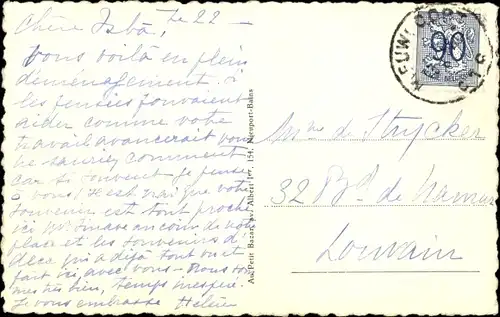 Chère Isba, Le 22 –
vous voilà en plein
déménagement, si
les pensées pouvaient
aider comme votre
travail avancerait vous
ne sauriez comment
car si souvent je pense
à vous! Il est vrai que votre
souvenir est tout proche
ici
place et les souvenirs d
qui a déjà tout
fait ici, avec vous – Nous sommes
très bien, temps inespéré.
Je vous embrasse Helène
Au Petit Bazar, av. Albert Ier, 154, Nieuport-Bains
NIEUWPOORT
90
Mme de Strycker
32 Bd. de Namur
Louvain